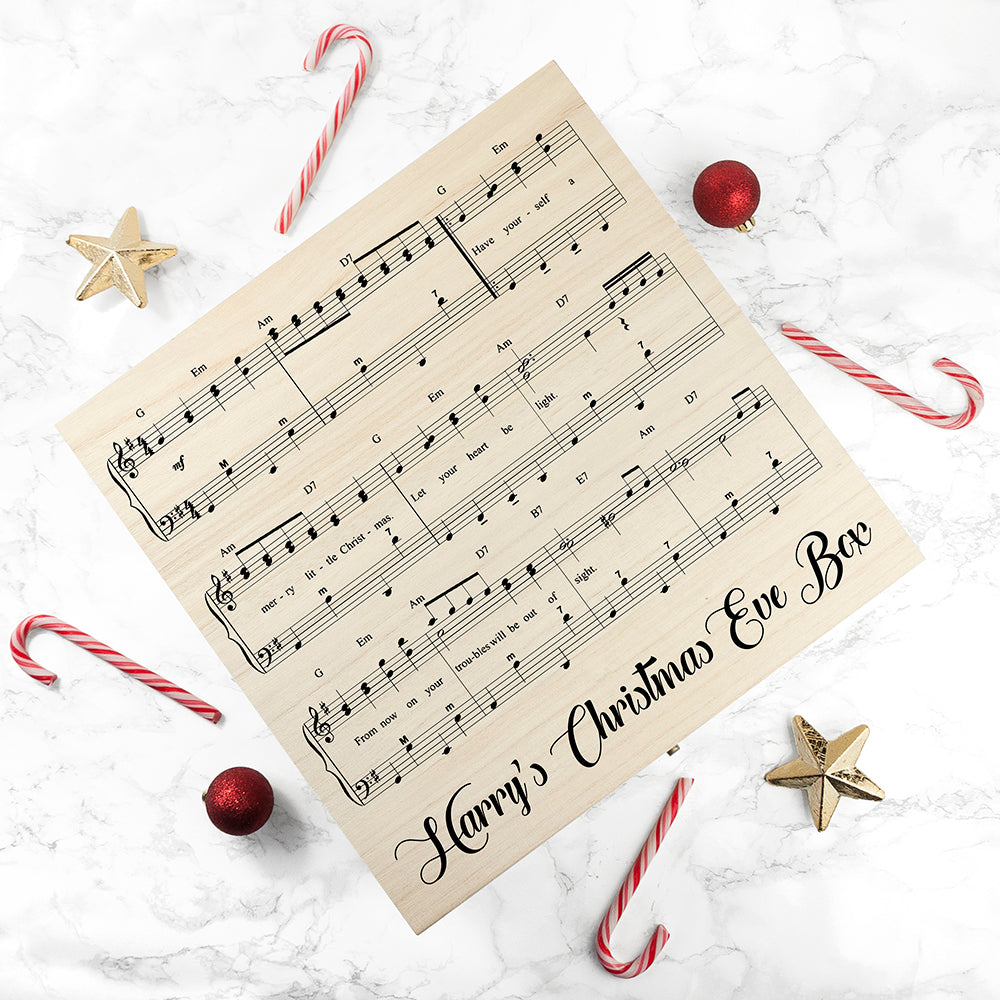 G Em Am D7 G Em
mf M m m 7
Have your - self a
Am D7 G Em Am D7
mer - ry lit - tle Christ - mas. Let your heart be light.
m 7 m 7
G Em Am D7 B7 E7 Am D7
From now on your trou-bles will be out of sight.
M m m 7 7 7 m 7
Harry's Christmas Eve Box